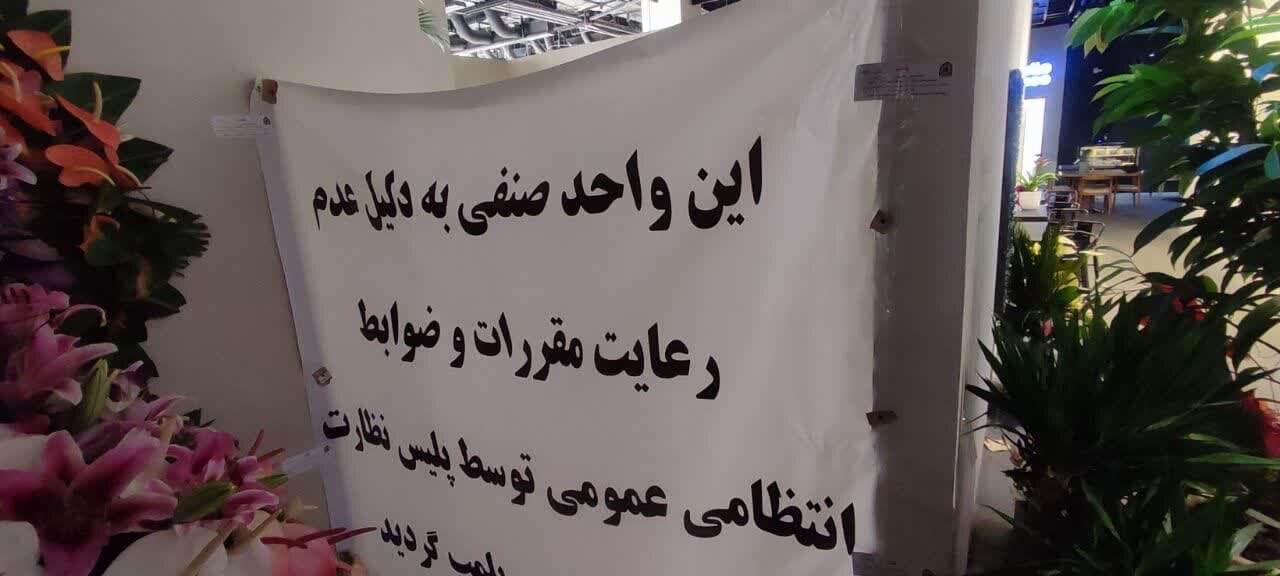 این واحد صنفی به دلیل عدم
رعایت مقررات و ضوابط
انتظامی عمومی توسط پلیس نظارت
پلمب گردید